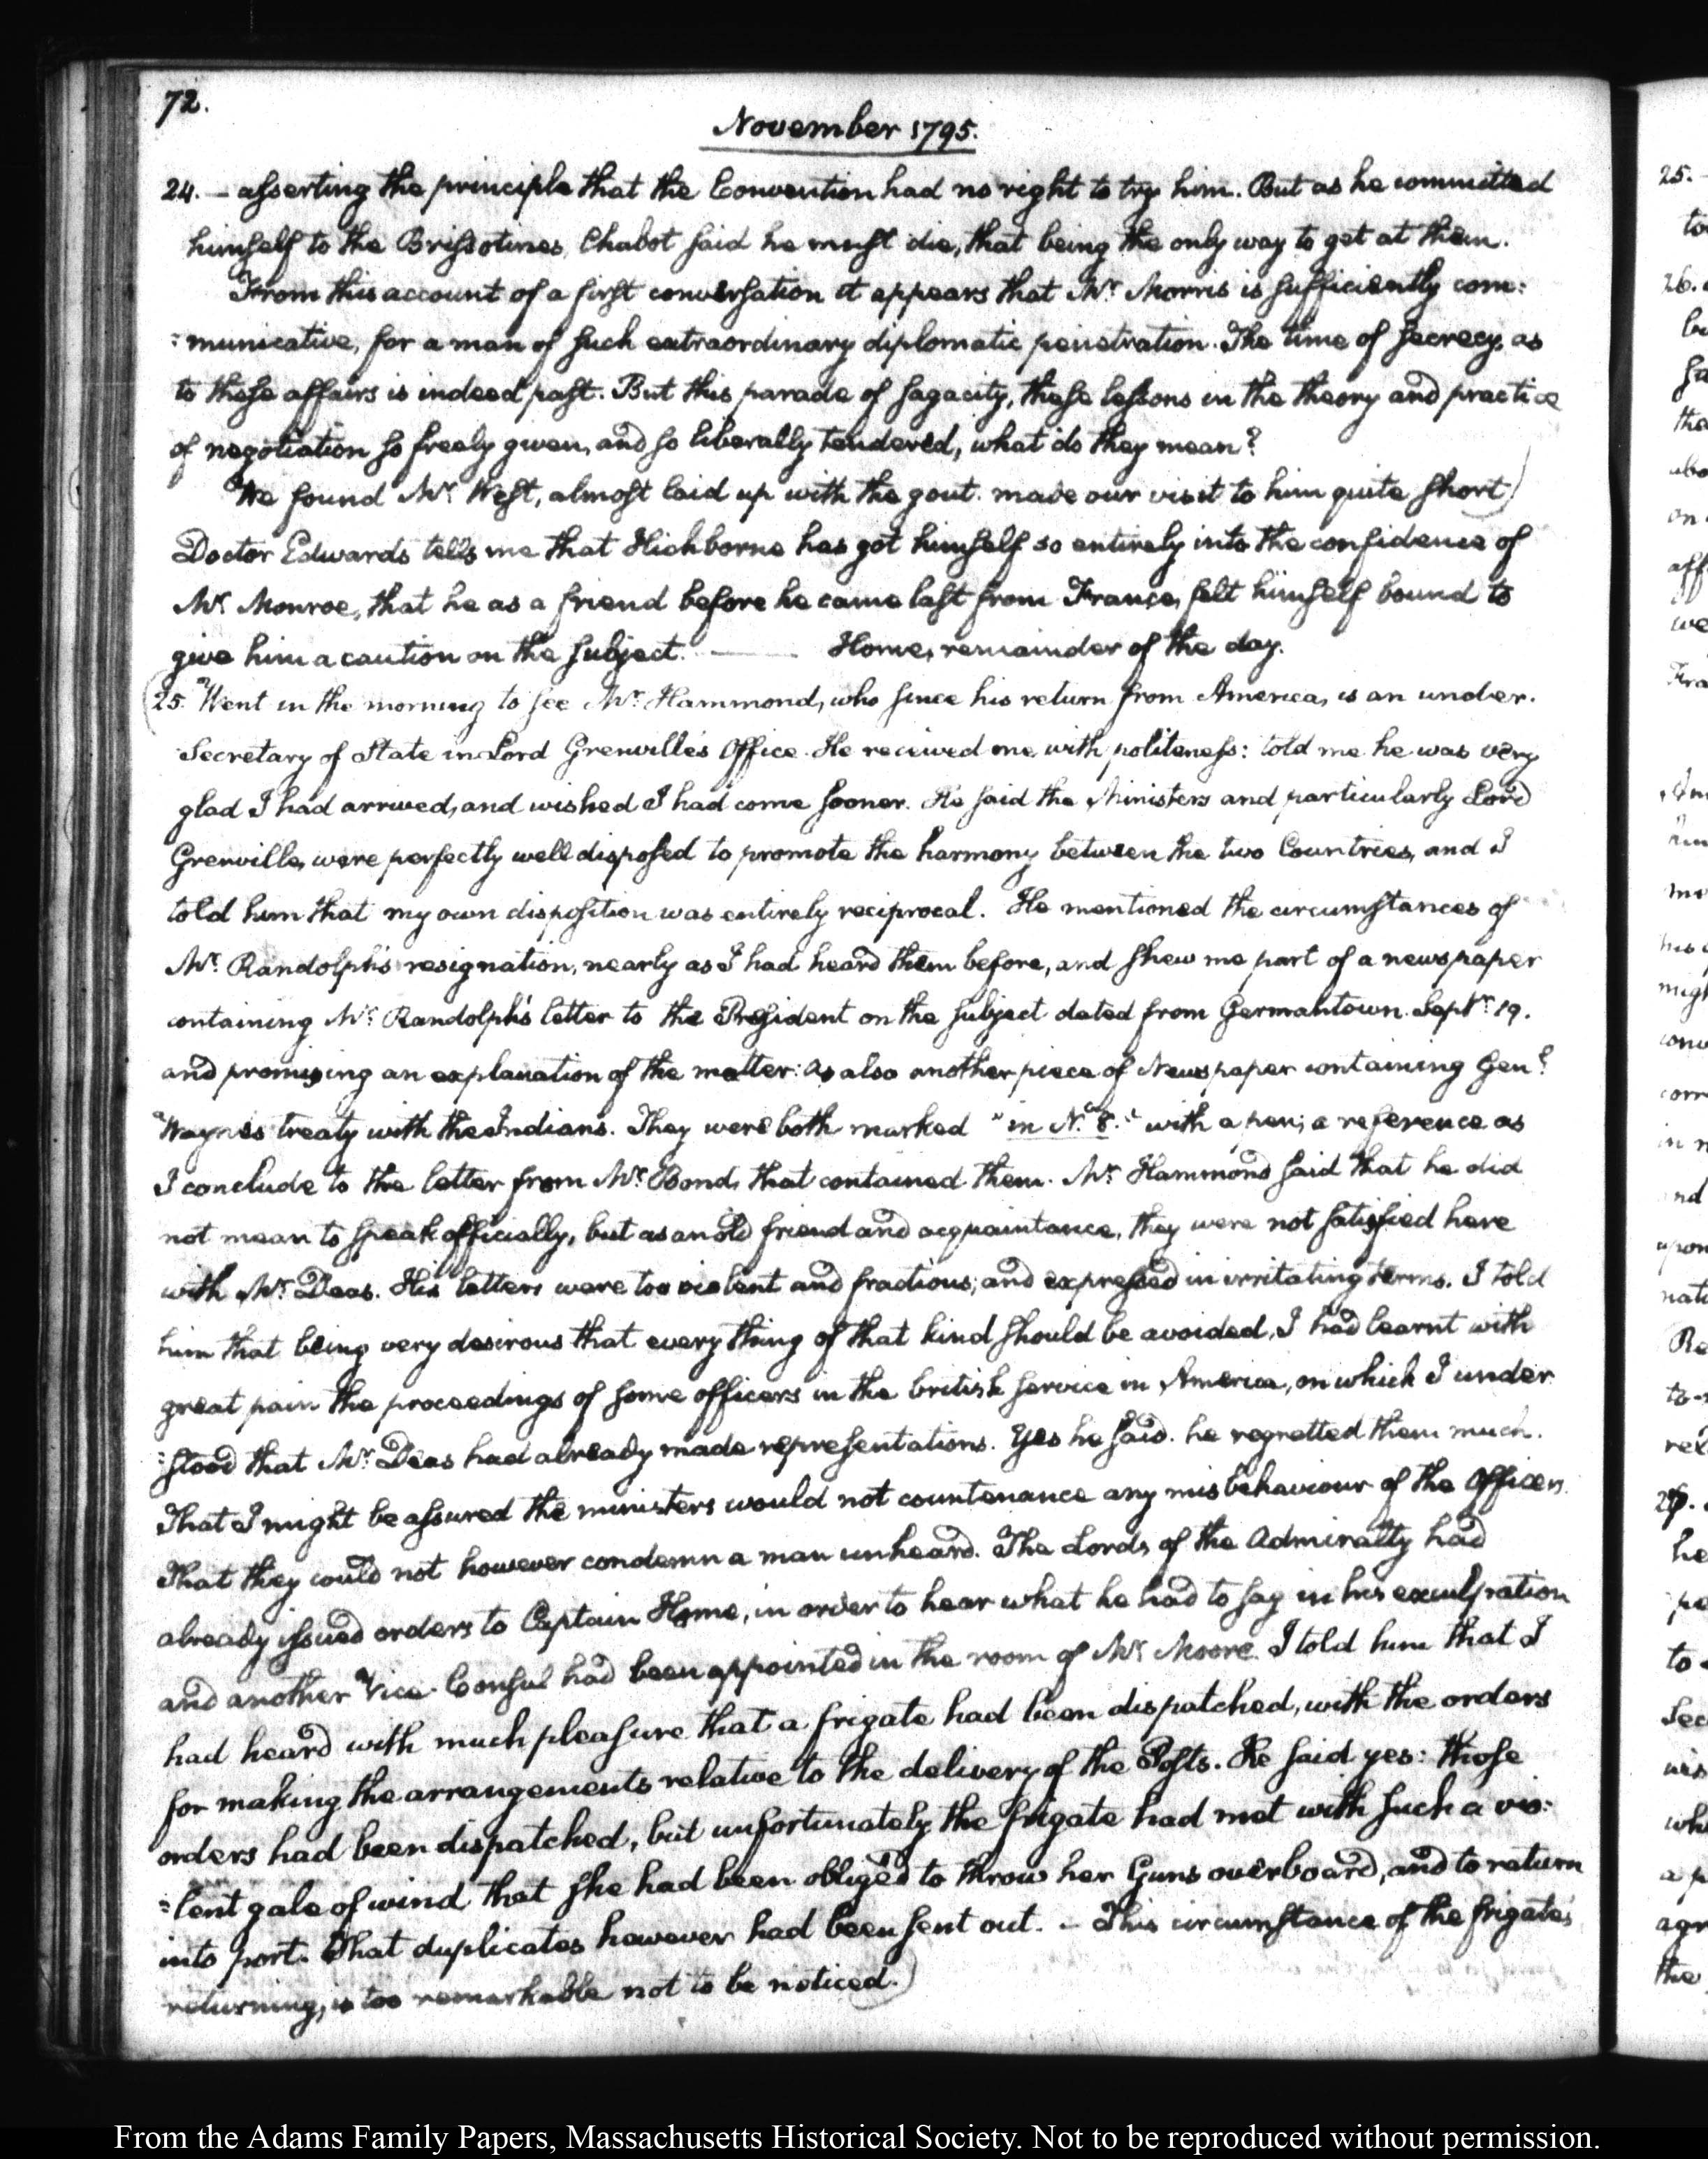 72.
November 1795.
24. – asserting the principle that the Convention had no right to try him. But as he committed
himself to the Brissotines, Chabot said he must die, that being the only way to get at them.
From this account of a first conversation it appears that Mr. Morris is sufficiently com:
:municative, for a man of such extraordinary diplomatic penetration. The time of secrecy, as
to these affairs is indeed past. But this parade of sagacity, these lessons in the theory and practice
of negotiation so freely given, and so liberally tendered, what do they mean?
We found Mr. West, almost laid up with the gout. made our visit to him quite short)
Doctor Edwards tells me that Hichborne has got himself so entirely into the confidence of
Mr. Monroe, that he as a friend before he came last from France, felt himself bound to
give him a caution on the subject. ——— Home, remainder of the day.
(25. Went in the morning to see Mr. Hammond, who since his return from America, is an under.
Secretary of State in Lord Grenville's Office. He received me with politeness: told me he was very
glad I had arrived, and wished I had come sooner. He said the Ministers and particularly Lord
Grenville, were perfectly well disposed to promote the harmony between the two Countries, and I
told him that my own disposition was entirely reciprocal. He mentioned the circumstances of
Mr. Randolph's resignation, nearly as I had heard them before, and shew me part of a newspaper
containing Mr. Randolph's letter to the President on the subject dated from Germantown Septr. 19.
and promising an explanation of the matter: as also another piece of Newspaper containing Genl.
Wayne's treaty with the Indians. They were both marked "in N. 8." with a pen; a reference as
I conclude to the letter from Mr. Bond, that contained them. Mr. Hammond said that he did
not mean to speak officially, but as an old friend and acquaintance, they were not satisfied here
with Mr. Deas. His letters were too violent and fractious, and expressed in irritating terms. I told
him that being very desirous that every thing of that kind should be avoided, I had learnt with
great pain the proceedings of some officers in the british service in America, on which I under
:stood that Mr. Deas had already made representations. Yes he said. he regretted them much.
That I might be assured the ministers would not countenance any misbehaviour of the Officers.
That they could not however condemn a man unheard. The Lords of the Admiralty had
already issued orders to Captain Home, in order to hear what he had to say in his exculpation
and another Vice-Consul had been appointed in the room of Mr. Moore. I told him that I
had heard with much pleasure that a frigate had been dispatched, with the orders
for making the arrangements relative to the delivery of the Posts. He said yes: those
orders had been dispatched, but unfortunately the frigate had met with such a vio:
:lent gale of wind that she had been obliged to throw her Guns overboard, and to return
into port. That duplicates however had been sent out. – This circumstance of the frigate's
returning, is too remarkable not to be noticed.)
From the Adams Family Papers, Massachusetts Historical Society. Not to be reproduced without permission.